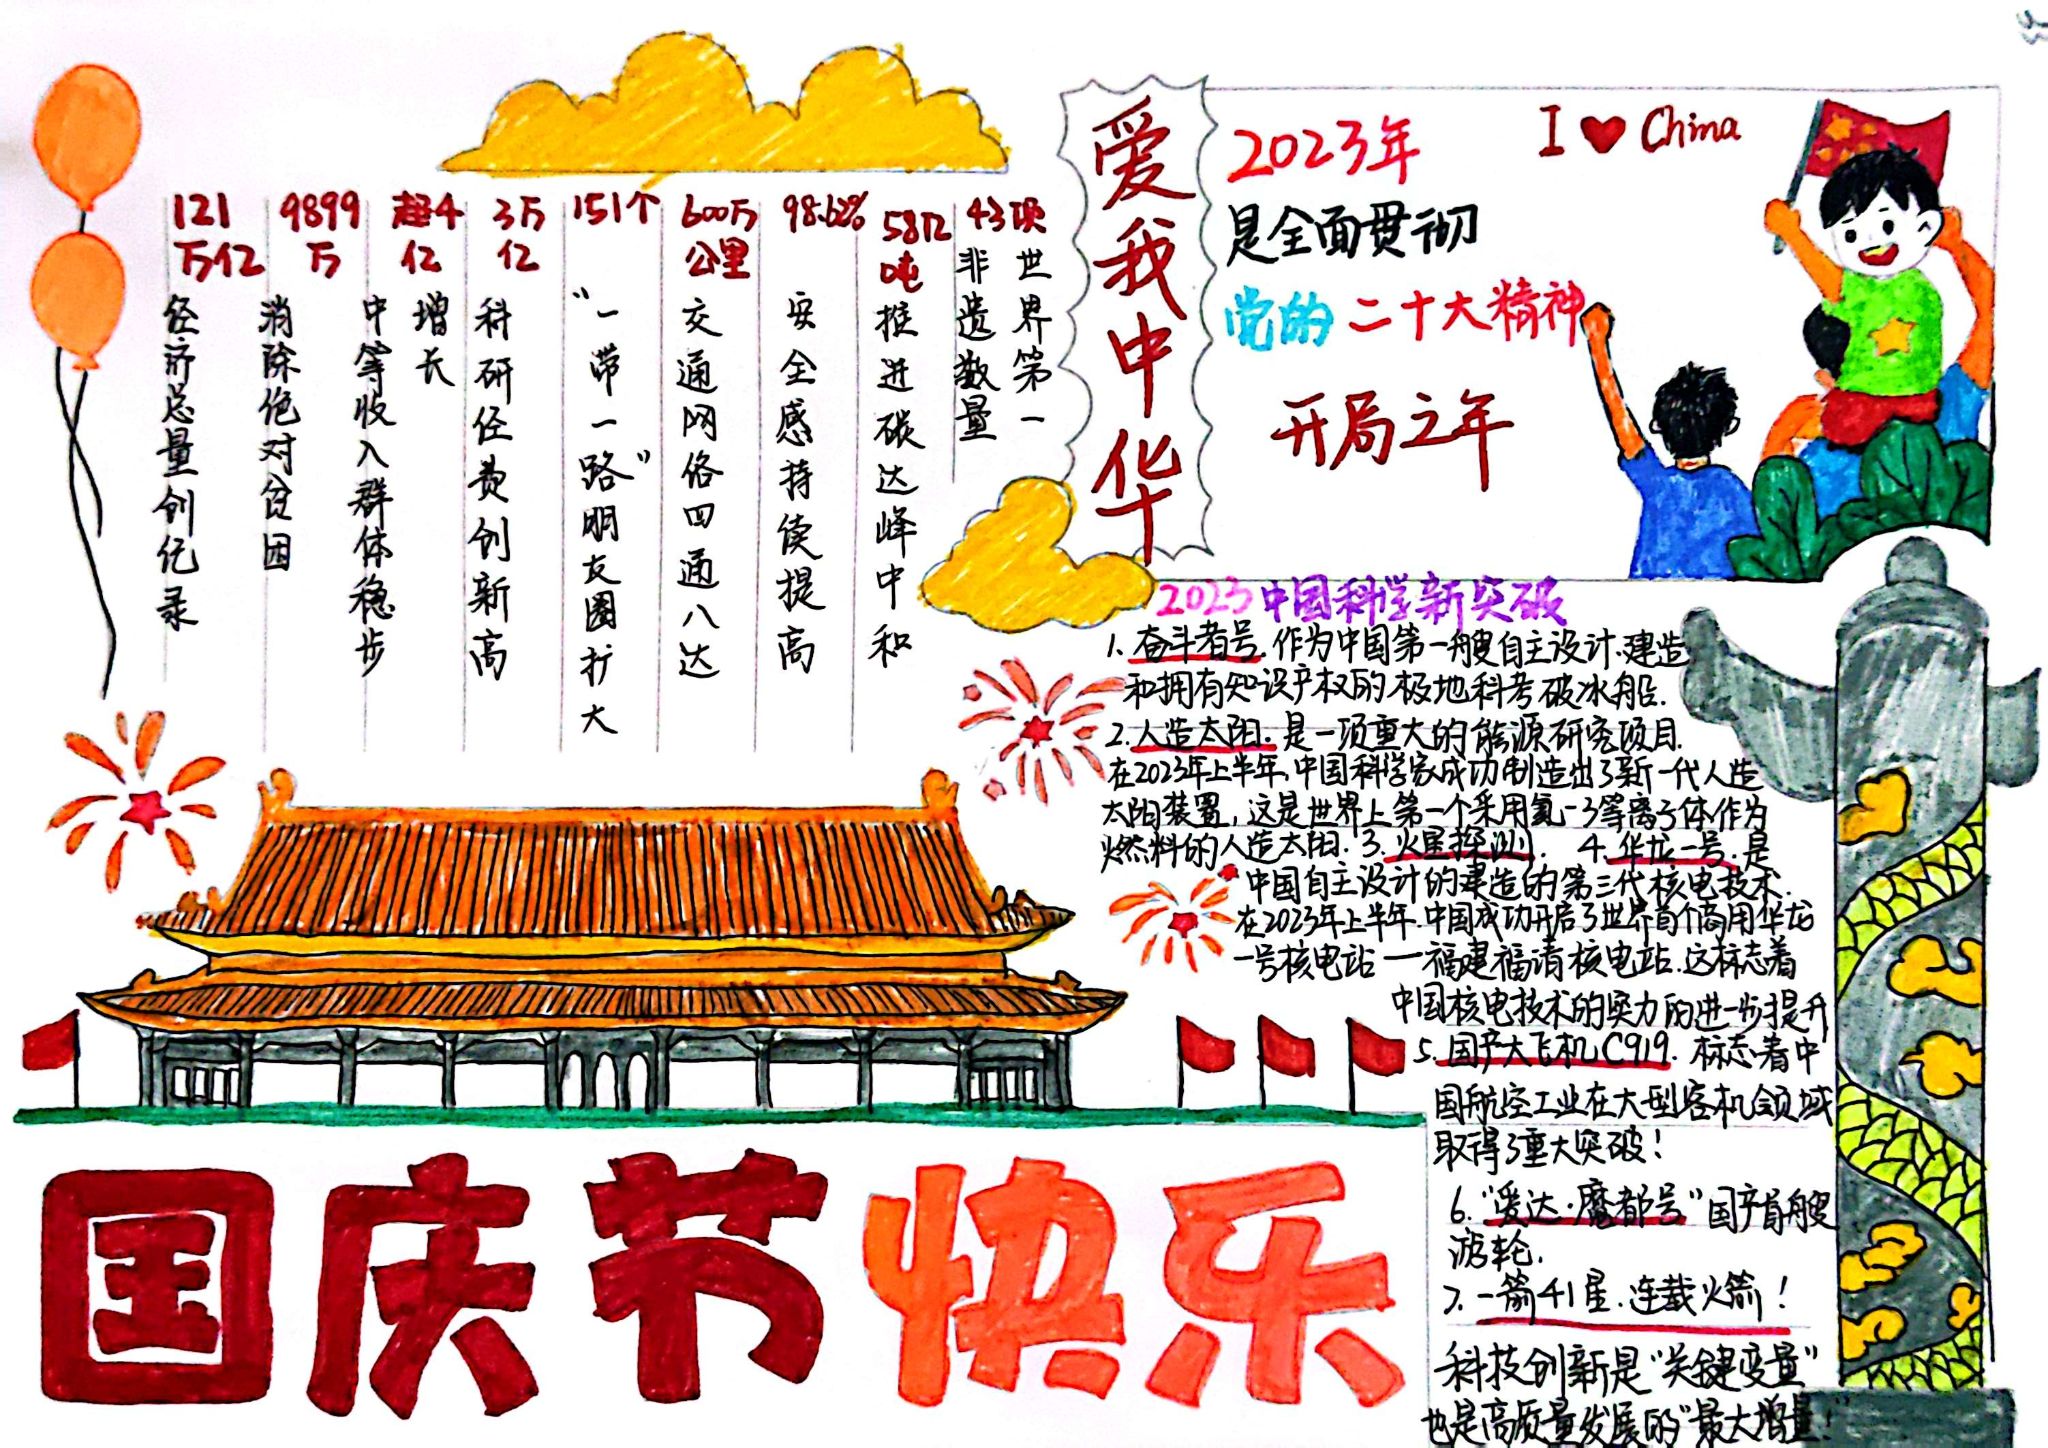 121
万亿
经济总量创纪录
9899
万
消除绝对贫困
超4
亿
中等收入群体稳步
增长
3万
亿
科研经费创新高
151个
"一带一路"朋友圈扩大
600万
公里
交通网络四通八达
98.62%
安全感持续提高
58亿
吨
推进碳达峰中和
43项
非遗数量
世界第一
爱我中华
2023年
是全面贯彻
党的二十大精神
开局之年
I ❤ China
2023中国科学新突破
1. 奋斗者号.作为中国第一艘自主设计.建造
和拥有知识产权的极地科考破冰船.
2.人造太阳.是一项重大的能源研究项目.
在2023年上半年,中国科学家成功制造出了新一代人造
太阳装置,这是世界上第一个采用氦-3等离子体作为
燃料的人造太阳. 3.火星探测. 4.华龙一号.是
中国自主设计的建造的第三代核电技术.
在2023年上半年.中国成功开启了世界首个商用华龙
一号核电站一福建福清核电站.这标志着
中国核电技术的实力的进步提升
5.国产大飞机C919.标志着中
国航空工业在大型客机领域
取得了重大突破!
6."爱达·魔都号"国产首艘
游轮.
7.一箭41星.连载火箭!
科技创新是"关键变量"
也是高质量发展的"最大增量!"
国庆节快乐